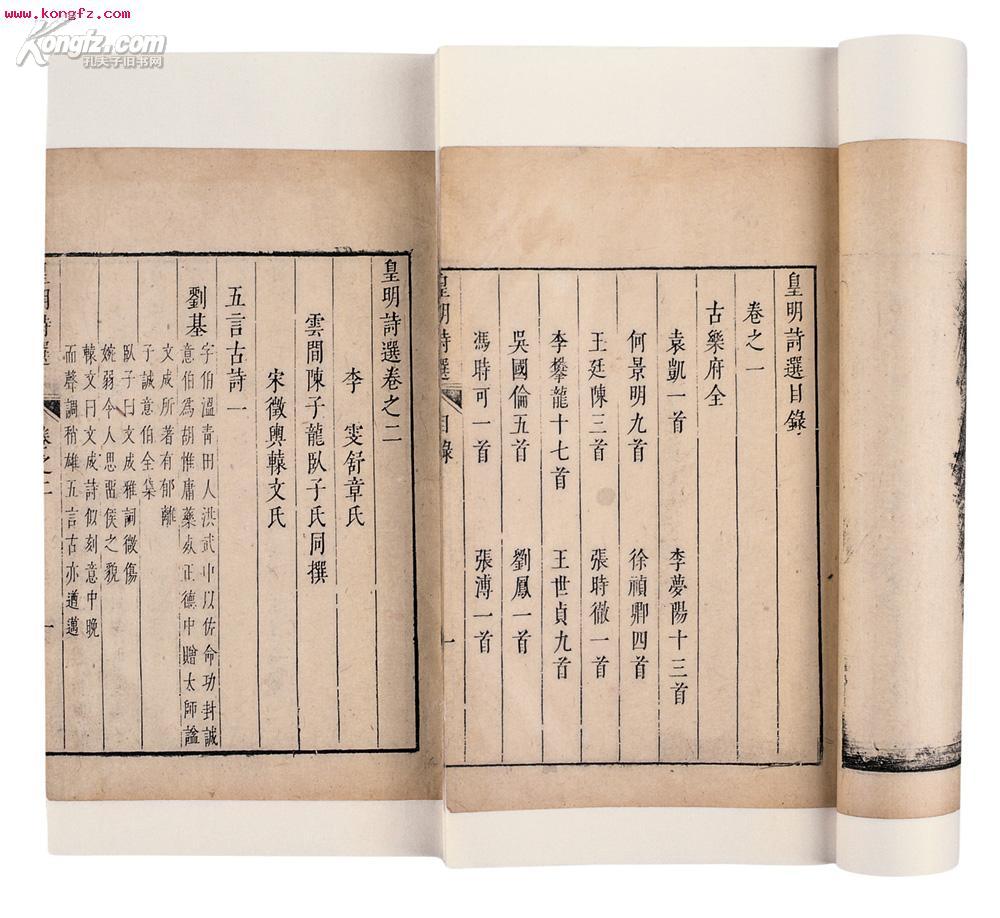 www.kongfz.com
Kongfz.com
孔夫子旧书网
皇明詩選目錄
卷之一
古樂府全
袁凱一首 李夢陽十三首
何景明九首 徐禎卿四首
王廷陳三首 張時徹一首
李攀龍十七首 王世貞九首
吳國倫五首 劉鳳一首
馮時可一首 張溥一首
皇明詩選 目錄 一
皇明詩選卷之二
李 雯舒章氏
雲間陳子龍臥子氏同撰
宋徵輿轅文氏
五言古詩一
劉基 字伯溫青田人洪武中以佐命功封誠
意伯爲胡惟庸藥死正德中贈太師謚
文成所著有郁離
子誠意伯全集
臥子曰文成雅詞微傷
婉弱令人思畱侯之貌
轅文曰文成詩似刻意中晚
而聲調稍雄五言古亦遒邁
皇明詩選 卷之二 一